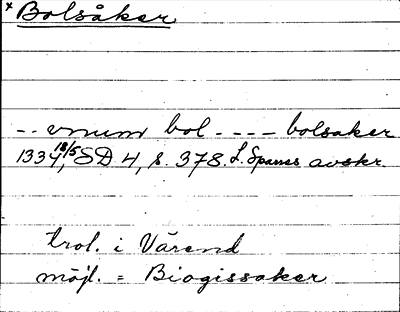 × Bolsåker
-- vnum bol ---- bolsaker
1334 18/5, SD 4, s. 378. L. Spanes avskr.
trol. i Värend
möjl. = Biogissaker